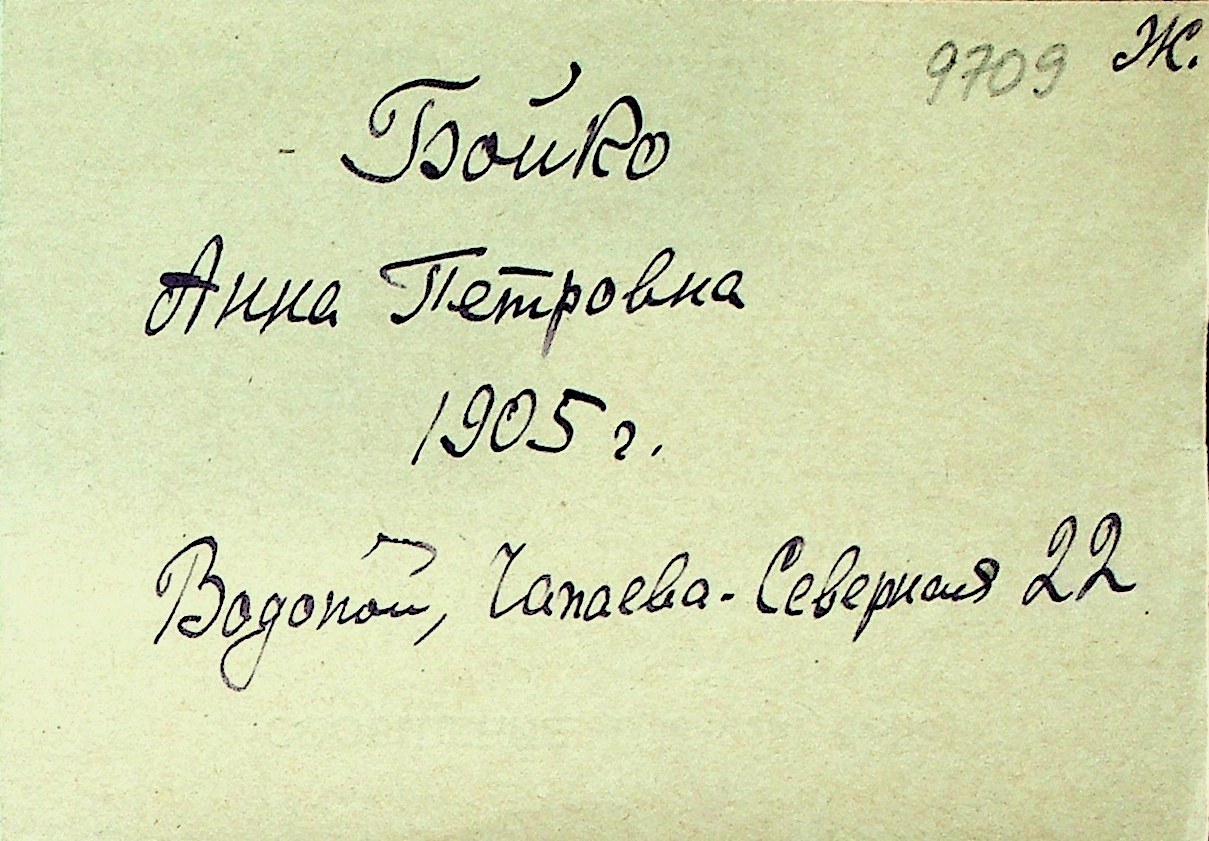 9709 Ж.
- Бойко
Анна Петровна
1905 г.
Водопой, Чапаева-Северная 22